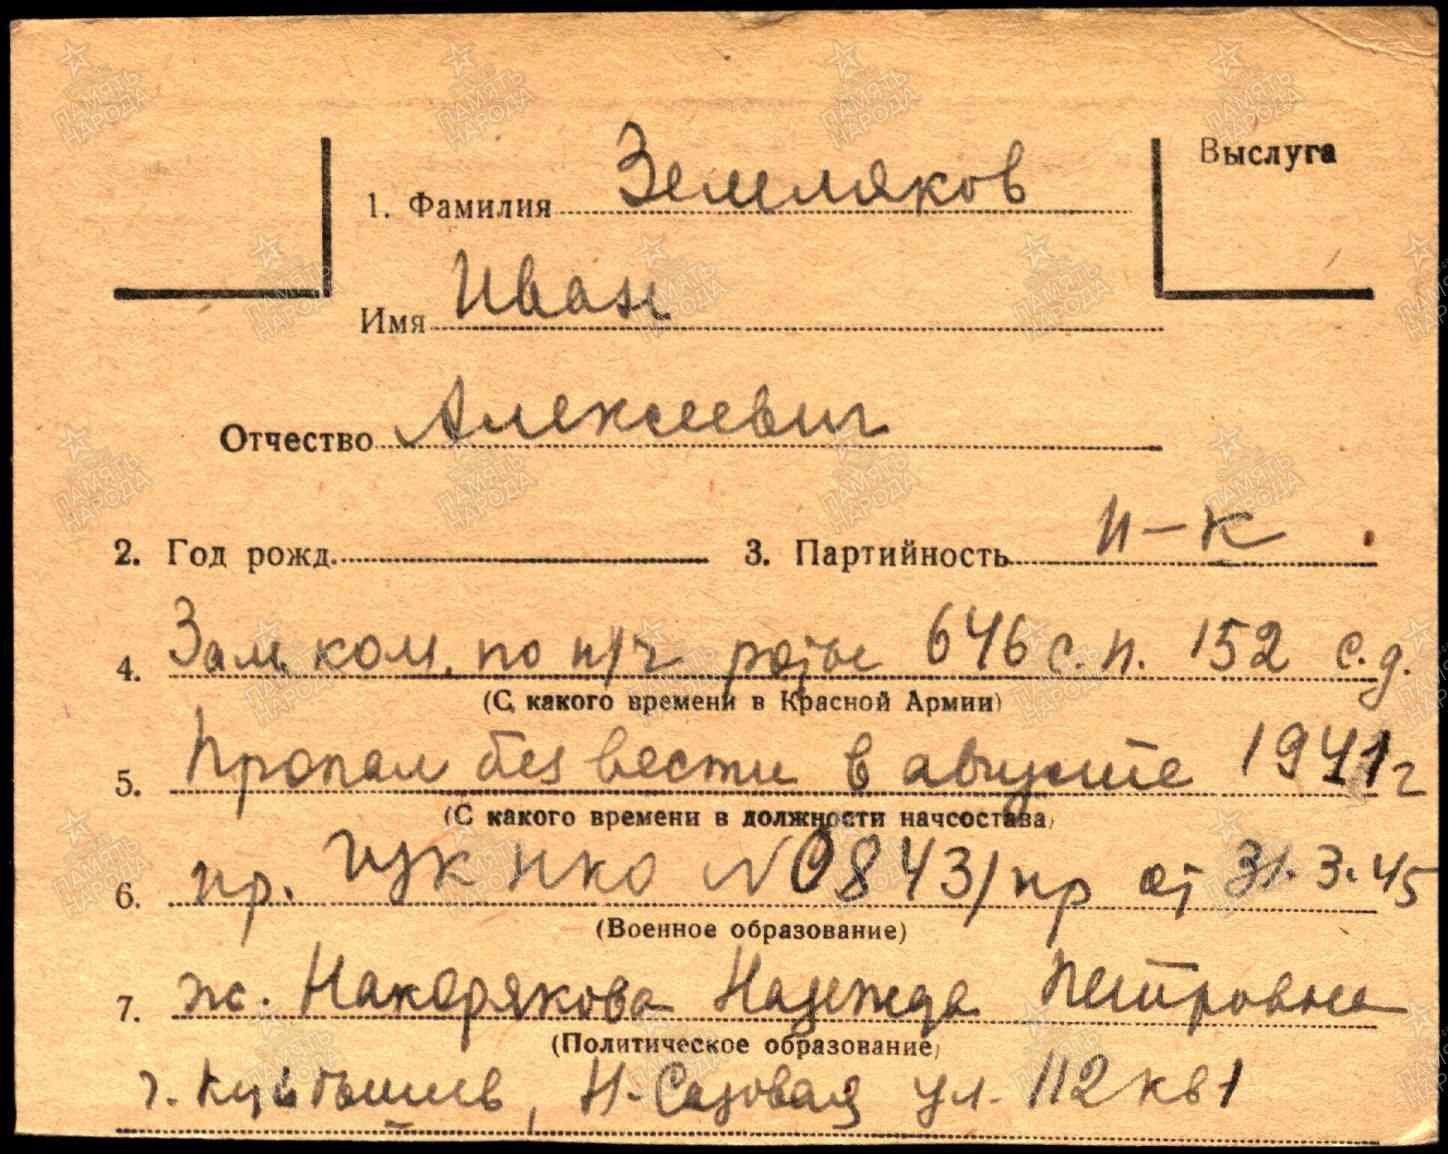 Выслуга
1. Фамилия Земляков
Имя Иван
Отчество Алексеевич
2. Год рожд. 3. Партийность п-к
4. Зам. ком. по п/ч роты 646 с.п. 152 с.д.
(С какого времени в Красной Армии)
5. Пропал без вести в августе 1941 г
(С какого времени в должности начсостава)
6. пр. ГУК НКО № 0843/пр от 31.3.45
(Военное образование)
7. ж. Накорякова Надежда Петровна
(Политическое образование)
г. Куйбышев, Н-Садовая ул. 112 кв 1
ПАМЯТЬ НАРОДА